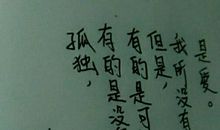 孤独，
有的是没
有的是可
但是，
我所没有
是爱。